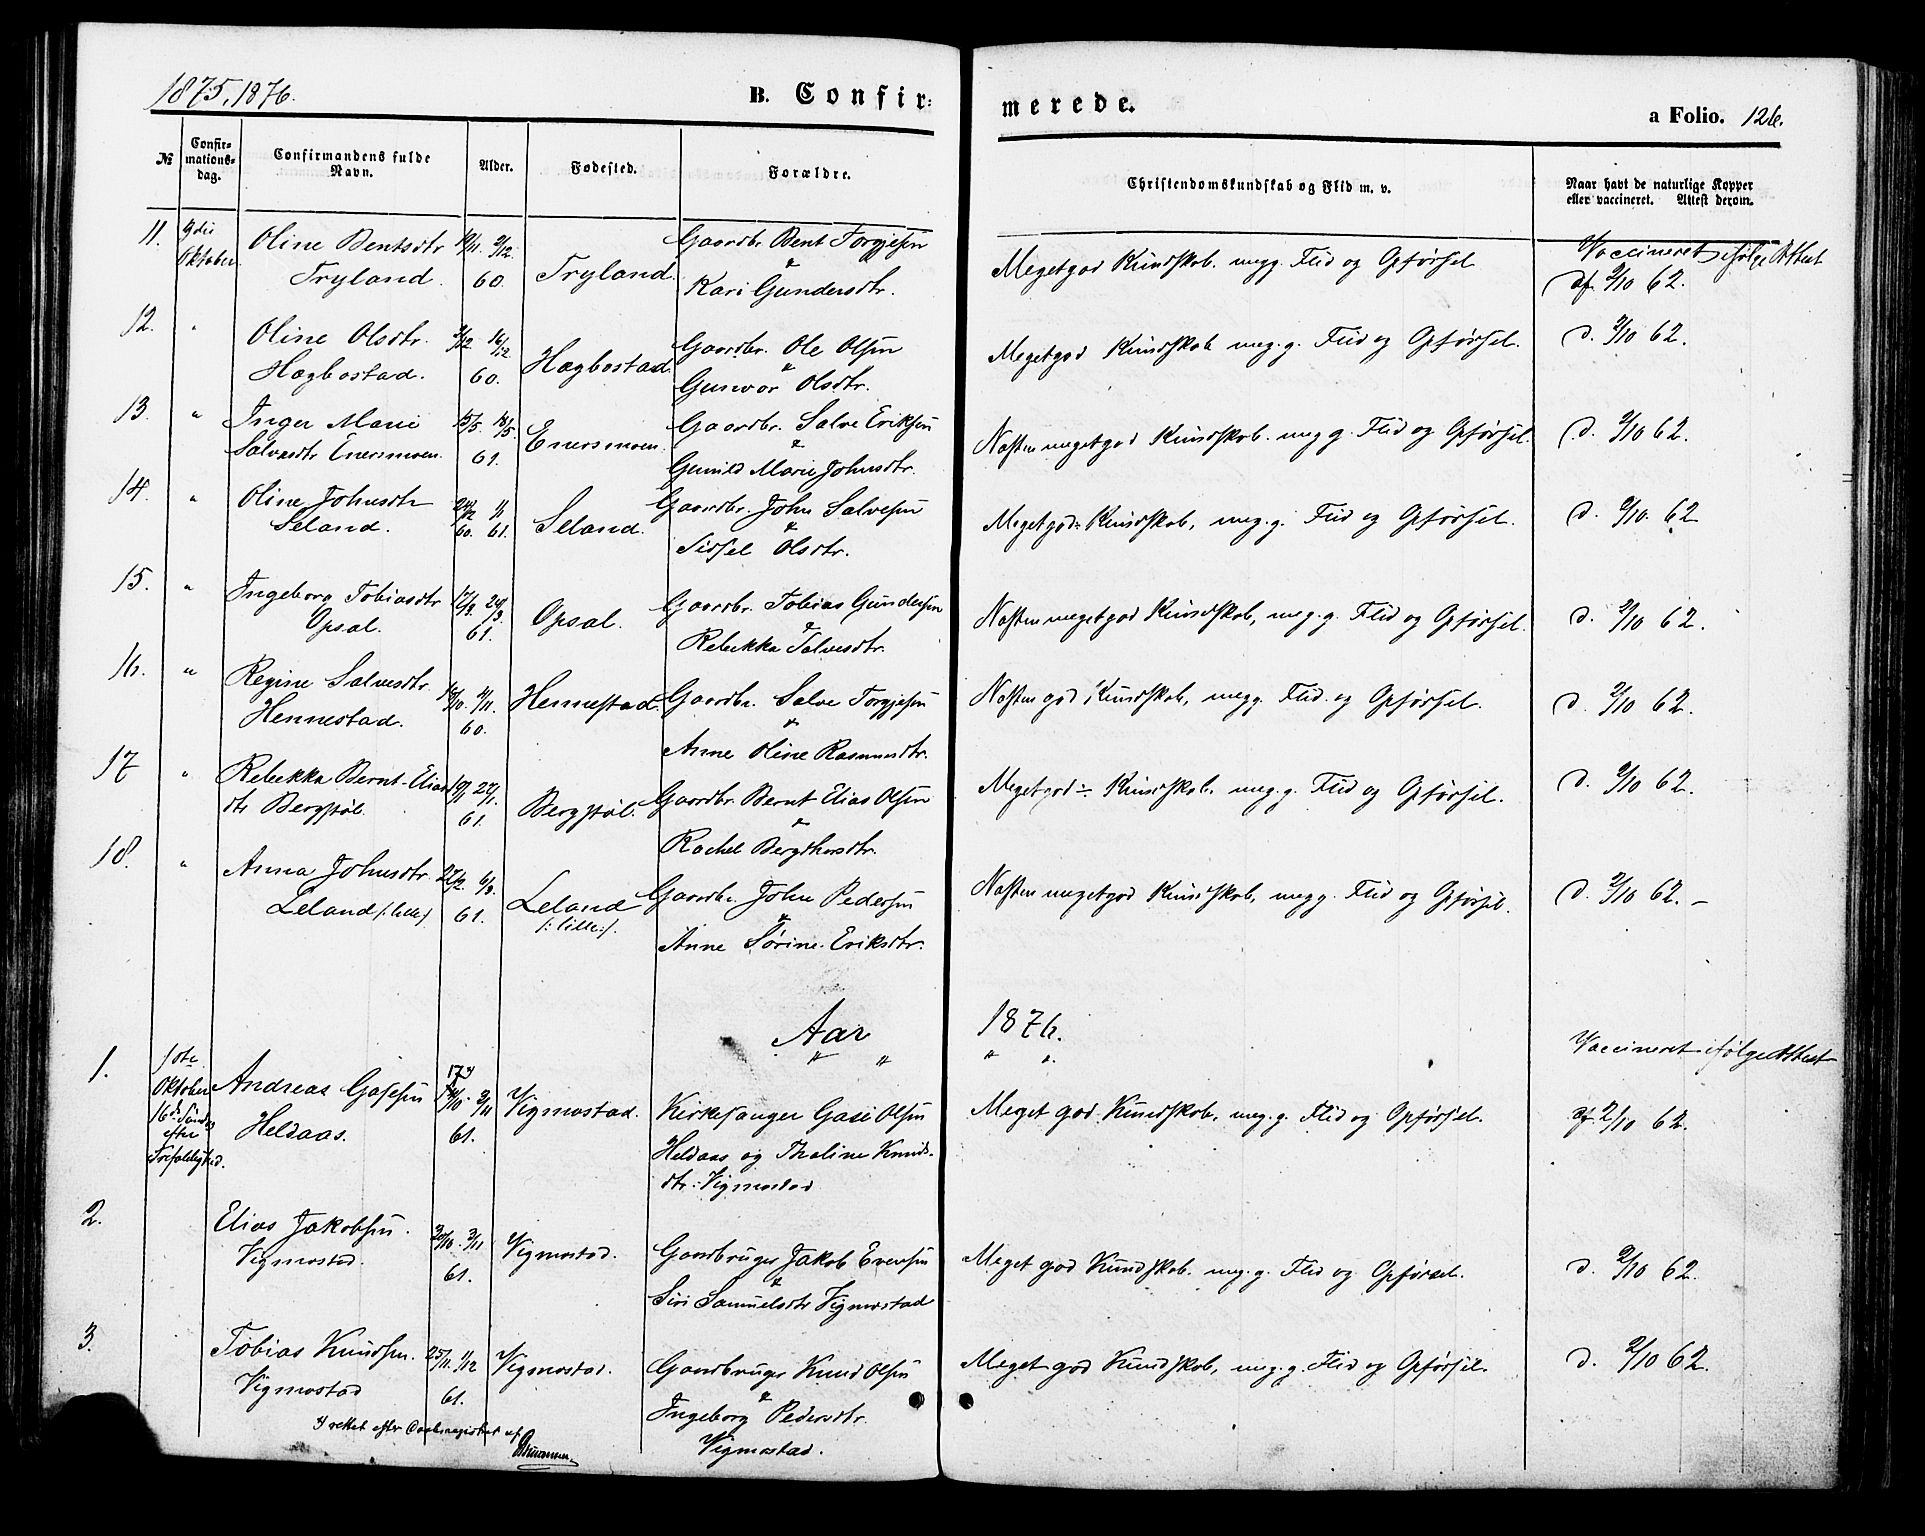 1875, 1876.
B. Confir=
merede.
a Folio. 126.
№
Confir=
mations=
dag.
Confirmandens fulde
Navn.
Alder.
Fødested.
Forældre.
Christendomskundskab og Flid m. v.
Naar havt de naturlige Kopper
eller vaccineret. Attest derom.
11. Oktober Oline Bentsdtr Tryland. 60. Tryland. Gaardbr. Bent Torgjesen & Kari Gundersdtr. Megetgod Kundskab. meg g. Flid og Opførsel Vaccineret ifølge Attest af 2/10 62.
12. " Oline Olsdtr. Hægbostad. 60. Hægbostad Gaardbr. Ole Olsen & Gunvor Olsdtr. Megetgod Kundskab meg. g. Flid og Opførsel. d. 2/10 62.
13. " Inger Marie Salvesdtr Enersmoen. 61. Enersmoen. Gaardbr. Salve Eriksen & Gunild Marie Johnsdtr. Næsten megetgod Kundskab. meg g. Flid og Opførsel. d. 2/10 62.
14. " Oline Johnsdtr Seland. 60. 61. Seland. Gaardbr. John Salvesen & Sissel Olsdtr. Megetgod÷ Kundskab, meg. g. Flid og Opførsel. d. 2/10. 62
15. " Ingeborg Tobiasdtr Opsal. 61. Opsal. Gaardbr. Tobias Gundersen & Rebekka Salvesdtr. Næsten megetgod Kundskab, meg. g. Flid og Opførsel. d. 2/10 62.
16. " Regine Salvesdtr. Hennestad. 60. Hennestad. Gaardbr. Salve Torgjesen & Anne Oline Rasmusdtr. Næsten god Kundskab, meg g. Flid og Opførsel. d. 2/10 62.
17 " Rebekka Bernt-Elias dtr Bergstøl. 61. Bergstøl. Gaardbr. Bernt Elias Olsen & Rachel Bergthersdtr. Megetgod÷ Kundskab. meg. g. Flid og Opførsel. d. 2/10 62.
18. " Anna Johnsdtr. Leland /: lille :/ 27/2 6/3 61. Leland /: lille :/. Gaardbr. John Pedersen & Anne Sørine Eriksdtr. Næsten megetgod Kundskab, meg g. Flid og Opførsel. d. 2/10 62. –
Aar 1876.
" " " "
1. 1ste Oktober 16de Søndag efter Trefoldighed. Andreas Gasesen Heldaas. 61. Vigmostad. Kirkesanger Gase Olsen Heldaas og Thaline Knuds- dtr. Vigmostad Meget god Kundskab, meg. g. Flid og Opførsel. Vaccineret ifølge Attest af 2/10 62.
2. Elias Jakobsen. Vigmostad. 3/11 61. Vigmostad. Gaardbruger Jakob Evensen & Siri Samuelsdtr Vigmostad Meget god Kundskab. meg. g. Flid og Opførsel. d. 2/10 62.
3. Tobias Knudsen. Vigmostad 25/11. 1/12 61. Vigmostad. Gaardbruger Knud Olsen & Ingeborg Pedersdtr. Vigmostad. Meget god Kundskab, meg. g. Flid og Opførsel. d. 2/10 62.